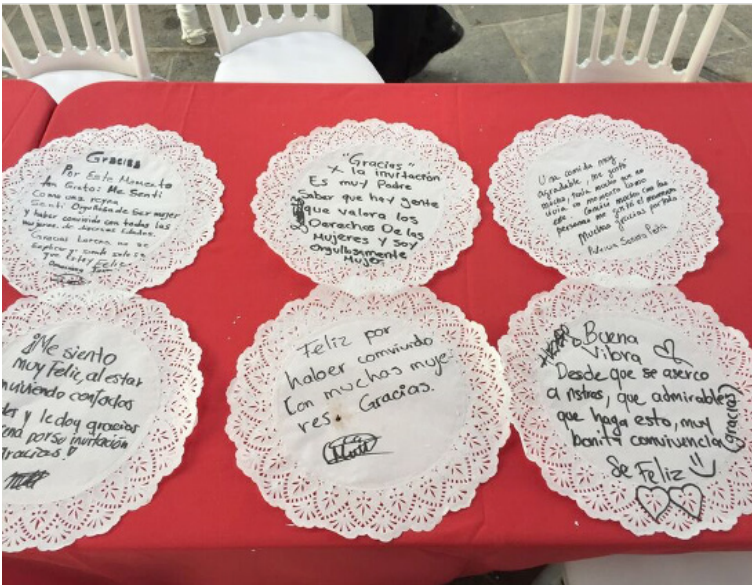 Gracias
Por Este Momento
tan Grato: Me Sentí
Como una reyna
Sentí Orgullosa de Ser mujer
y haber convivido con todas las
mujeres de
Gracias Lorena no se
explicar y
que Estoy Feliz
"Gracias"
X la invitación
Es muy Padre
Saber que hay gente
que valora los
Derechos De las
Mujeres y Soy
Orgullosamente
Mujer.
Una comida muy
agradable, me gustó
mucho, hacía mucho que no
vivía un momento como
este. Conviví mucho con las
personas me sentí el momento
Muchas gracias por todo
¡Me siento
muy Feliz, al estar
conviviendo con todas
y le doy gracias
por su invitación
Gracias!
Feliz por
haber convivido
Con muchas muje-
res. Gracias.
Buena
Vibra
Desde que se aserco
a nstras, que admirable
que haga esto, muy
bonita convivencia
(gracias)
Se Feliz